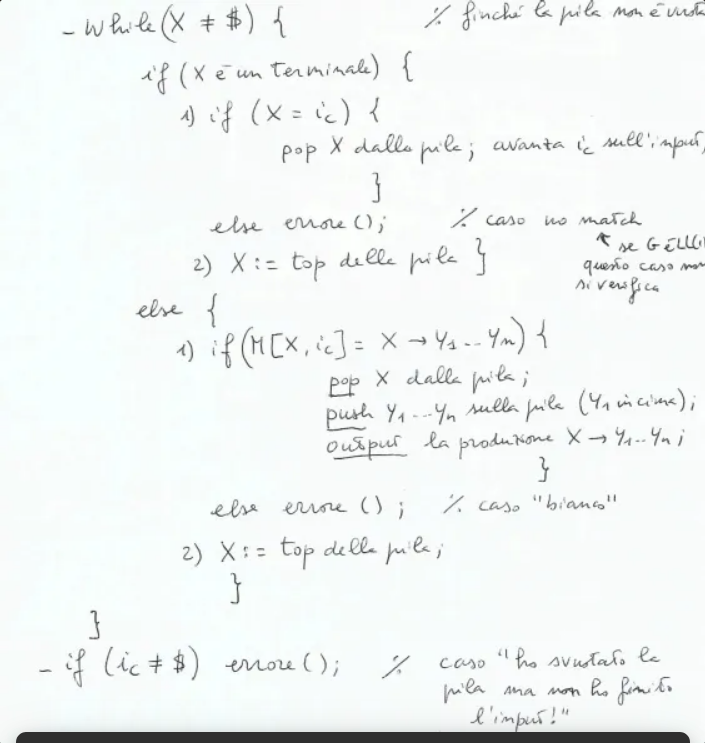 - While (X ≠ $) { % finché la pila non è vuota
if (X è un terminale) {
1) if (X = ic) {
pop X dalla pila; avanza ic sull'input;
}
else errore(); % caso no match
↑ se G è LL(1)
2) X := top della pila }
questo caso non
si verifica
else {
1) if (M[X, ic] = X → Y1 .. Yn) {
pop X dalla pila;
push Y1 ... Yn sulla pila (Y1 in cima);
output la produzione X → Y1 .. Yn ;
}
else errore () ; % caso "bianco"
2) X := top della pila;
}
}
- if (ic ≠ $) errore(); % caso "ho svuotato la
pila ma non ho finito
l'input!"